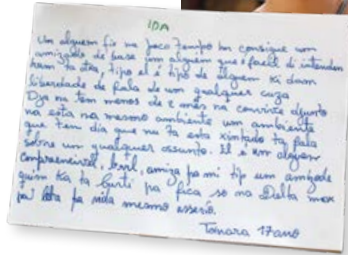 IDA
Um alguem fix na poco tempo bn consigue um
amizade de base um alguem que é facil di intenden
ham ta otra, tipo el é tipo de alguem ki dam
liberdade de fala de um qualquer cuza
Dja na tem menos de 2 mes na convive djunto
na esta na mesmo ambiente um ambiente
que tem dia que nu ta esta xintado ta fala
sobre um qualquer assunto. El é um alguem
compreensivel, bril, amiga pa mi tip um amizade
quem ka ta burti pa fica so na Delta mas
pa leba pa vida mesmo asserio.
Tamara 17 ano